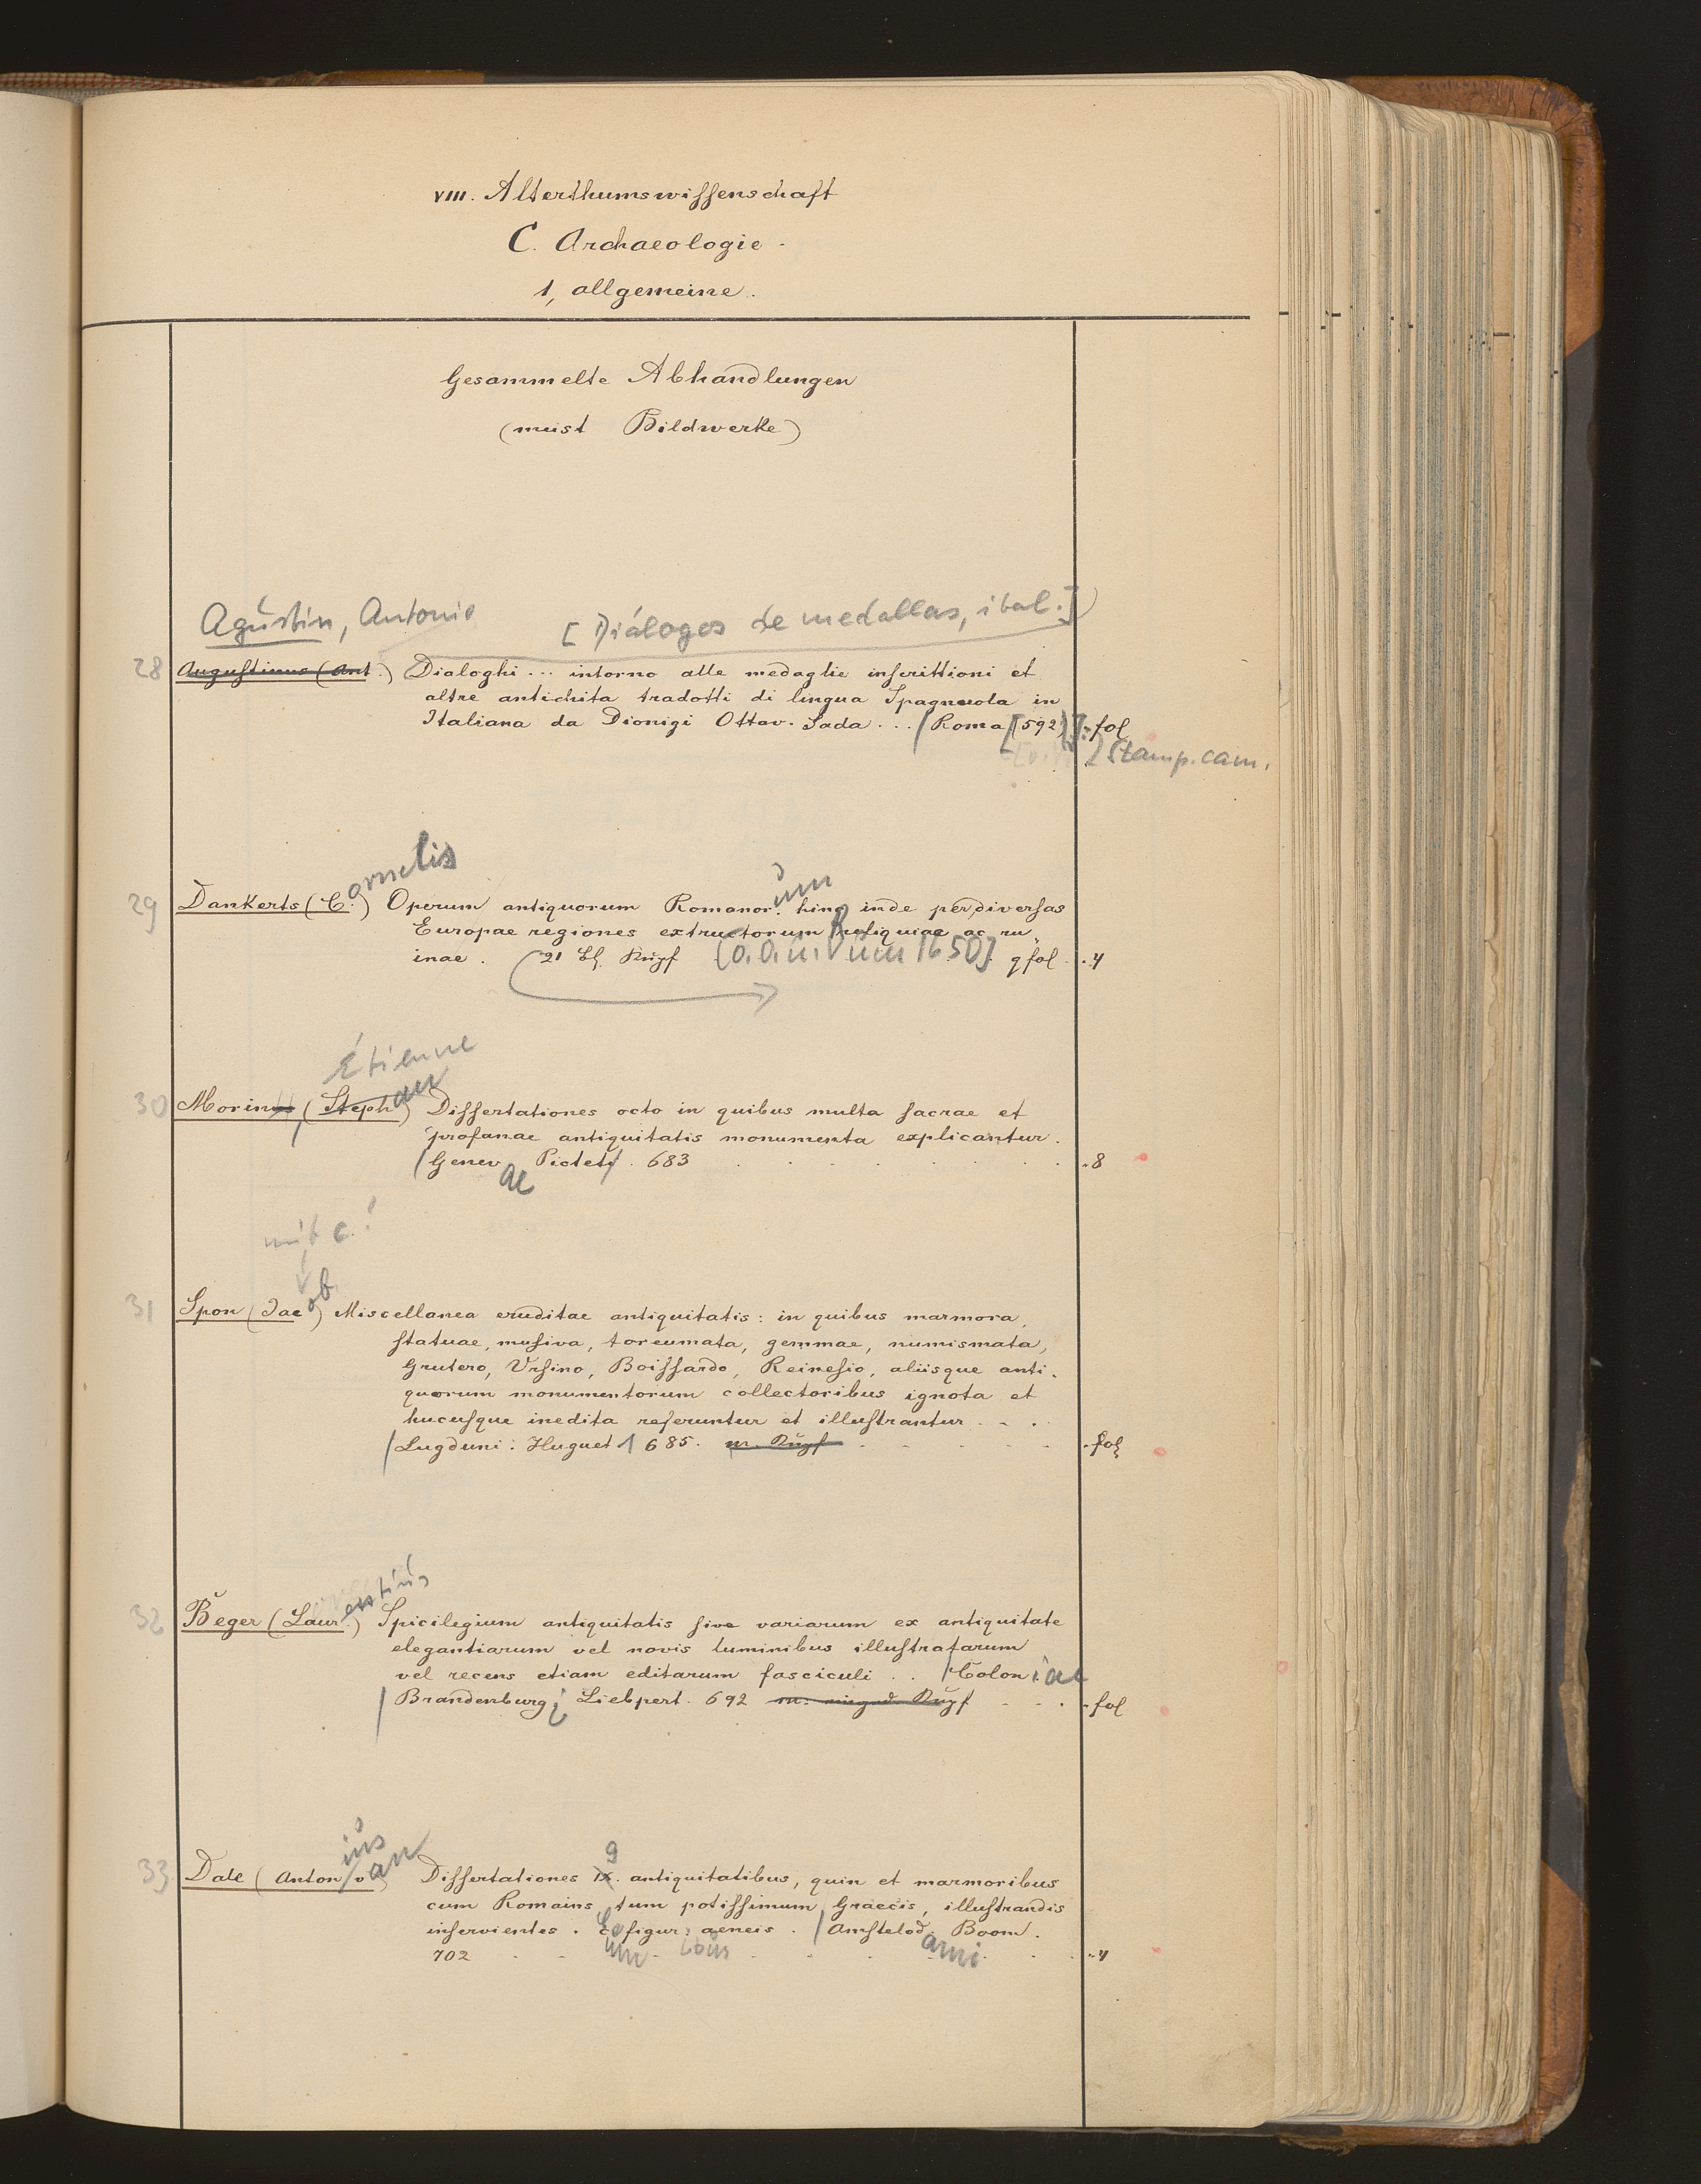 VIII. Alterthumswissenschaft
C. Archaeologie.
1, allgemeine.
Gesammelte Abhandlungen
(meist Bildwerke)
Agustín, Antonio [Diálogos de medallas, ital.]
28 Augustinus (Ant.) Dialoghi ... intorno alle medaglie inscrittioni et
altre antichita tradotti di lingua Spagnuola in
Italiana da Dionigi Ottav. Sada ... / Roma [(592)] : fol
Stamp. cam.
ornelis um
29 Dankerts (C.) Operum antiquorum Romanor. hinc inde per diversas
Europae regiones extructorum reliquiae ac ru
inae. 21 Bl. Kupf [o. O. u. V. um 1650] qfol . 4
Étienne
an
30 Morinus, (Steph) Dissertationes octo in quibus multa sacrae et
profanae antiquitatis monumenta explicantur.
/ Genev Pictet . 683 . 8
ae
mit c!
ob
31 Spon (Jac) Miscellanea eruditae antiquitatis: in quibus marmora,
statuae, musiva, toreumata, gemmae, numismata,
Grutero, Ursino, Boissardo, Reinesio, aliisque anti-
quorum monumentorum collectoribus ignota et
hucusque inedita referuntur et illustrantur . . .
/ Lugduni: Huguet 1685. m. Kupf . fol
entius
32 Beger (Laur.) Spicilegium antiquitatis sive variarum ex antiquitate
elegantiarum vel novis luminibus illustratarum
vel recens etiam editarum fasciculi . . / Coloniae
/ Brandenburgi Liebpert. 692 m. Kupf . fol
ius
an 9
33 Dale (Anton v) Dissertationes IX. antiquitatibus, quin et marmoribus
cum Romains, tum potissimum Graecis, illustrandis
inservientes. C figur. aeneis. / Amstelod. Boom.
um ibus ami
702 . 4